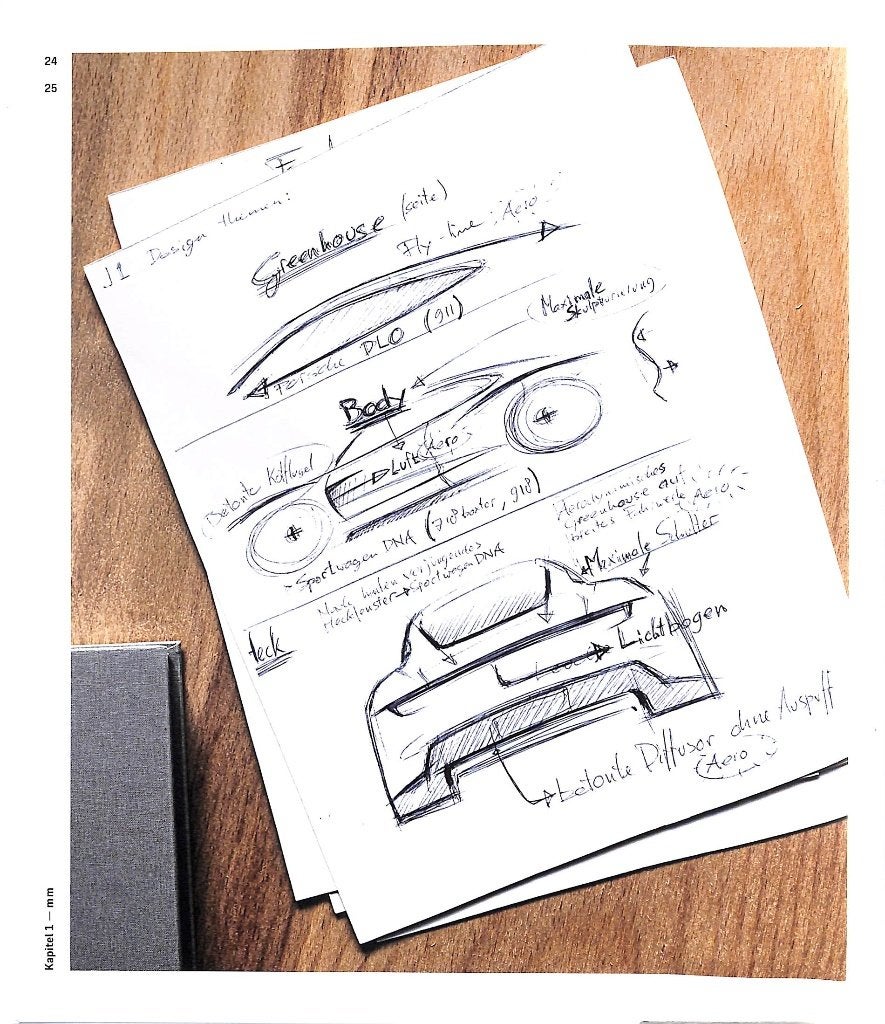 24
25
J1 Design themen:
Greenhouse (seite)
Fly-line Aero
Porsche DLO (911)
Maximale
Skulpturierung
Body
Betonte Kotflügel
Luft Aero
Sportwagen DNA (718 boxter, 918)
Aerodynamisches
Greenhouse auf
breites
Aero
Nach hinten verjüngendes
Heckfenster → Sportwagen DNA
Maximale Schulter
Heck
Lichtbogen
betonte Diffusor ohne Auspuff
(Aero)
Kapitel 1 — mm